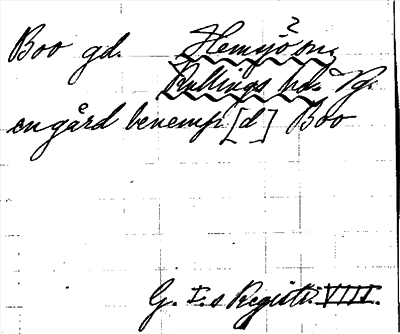 ?
Boo gd. Hemsjö sn.
Kullings hd. Vg.
en gård benemp[d] Boo
G. I.s Registr. VIII.